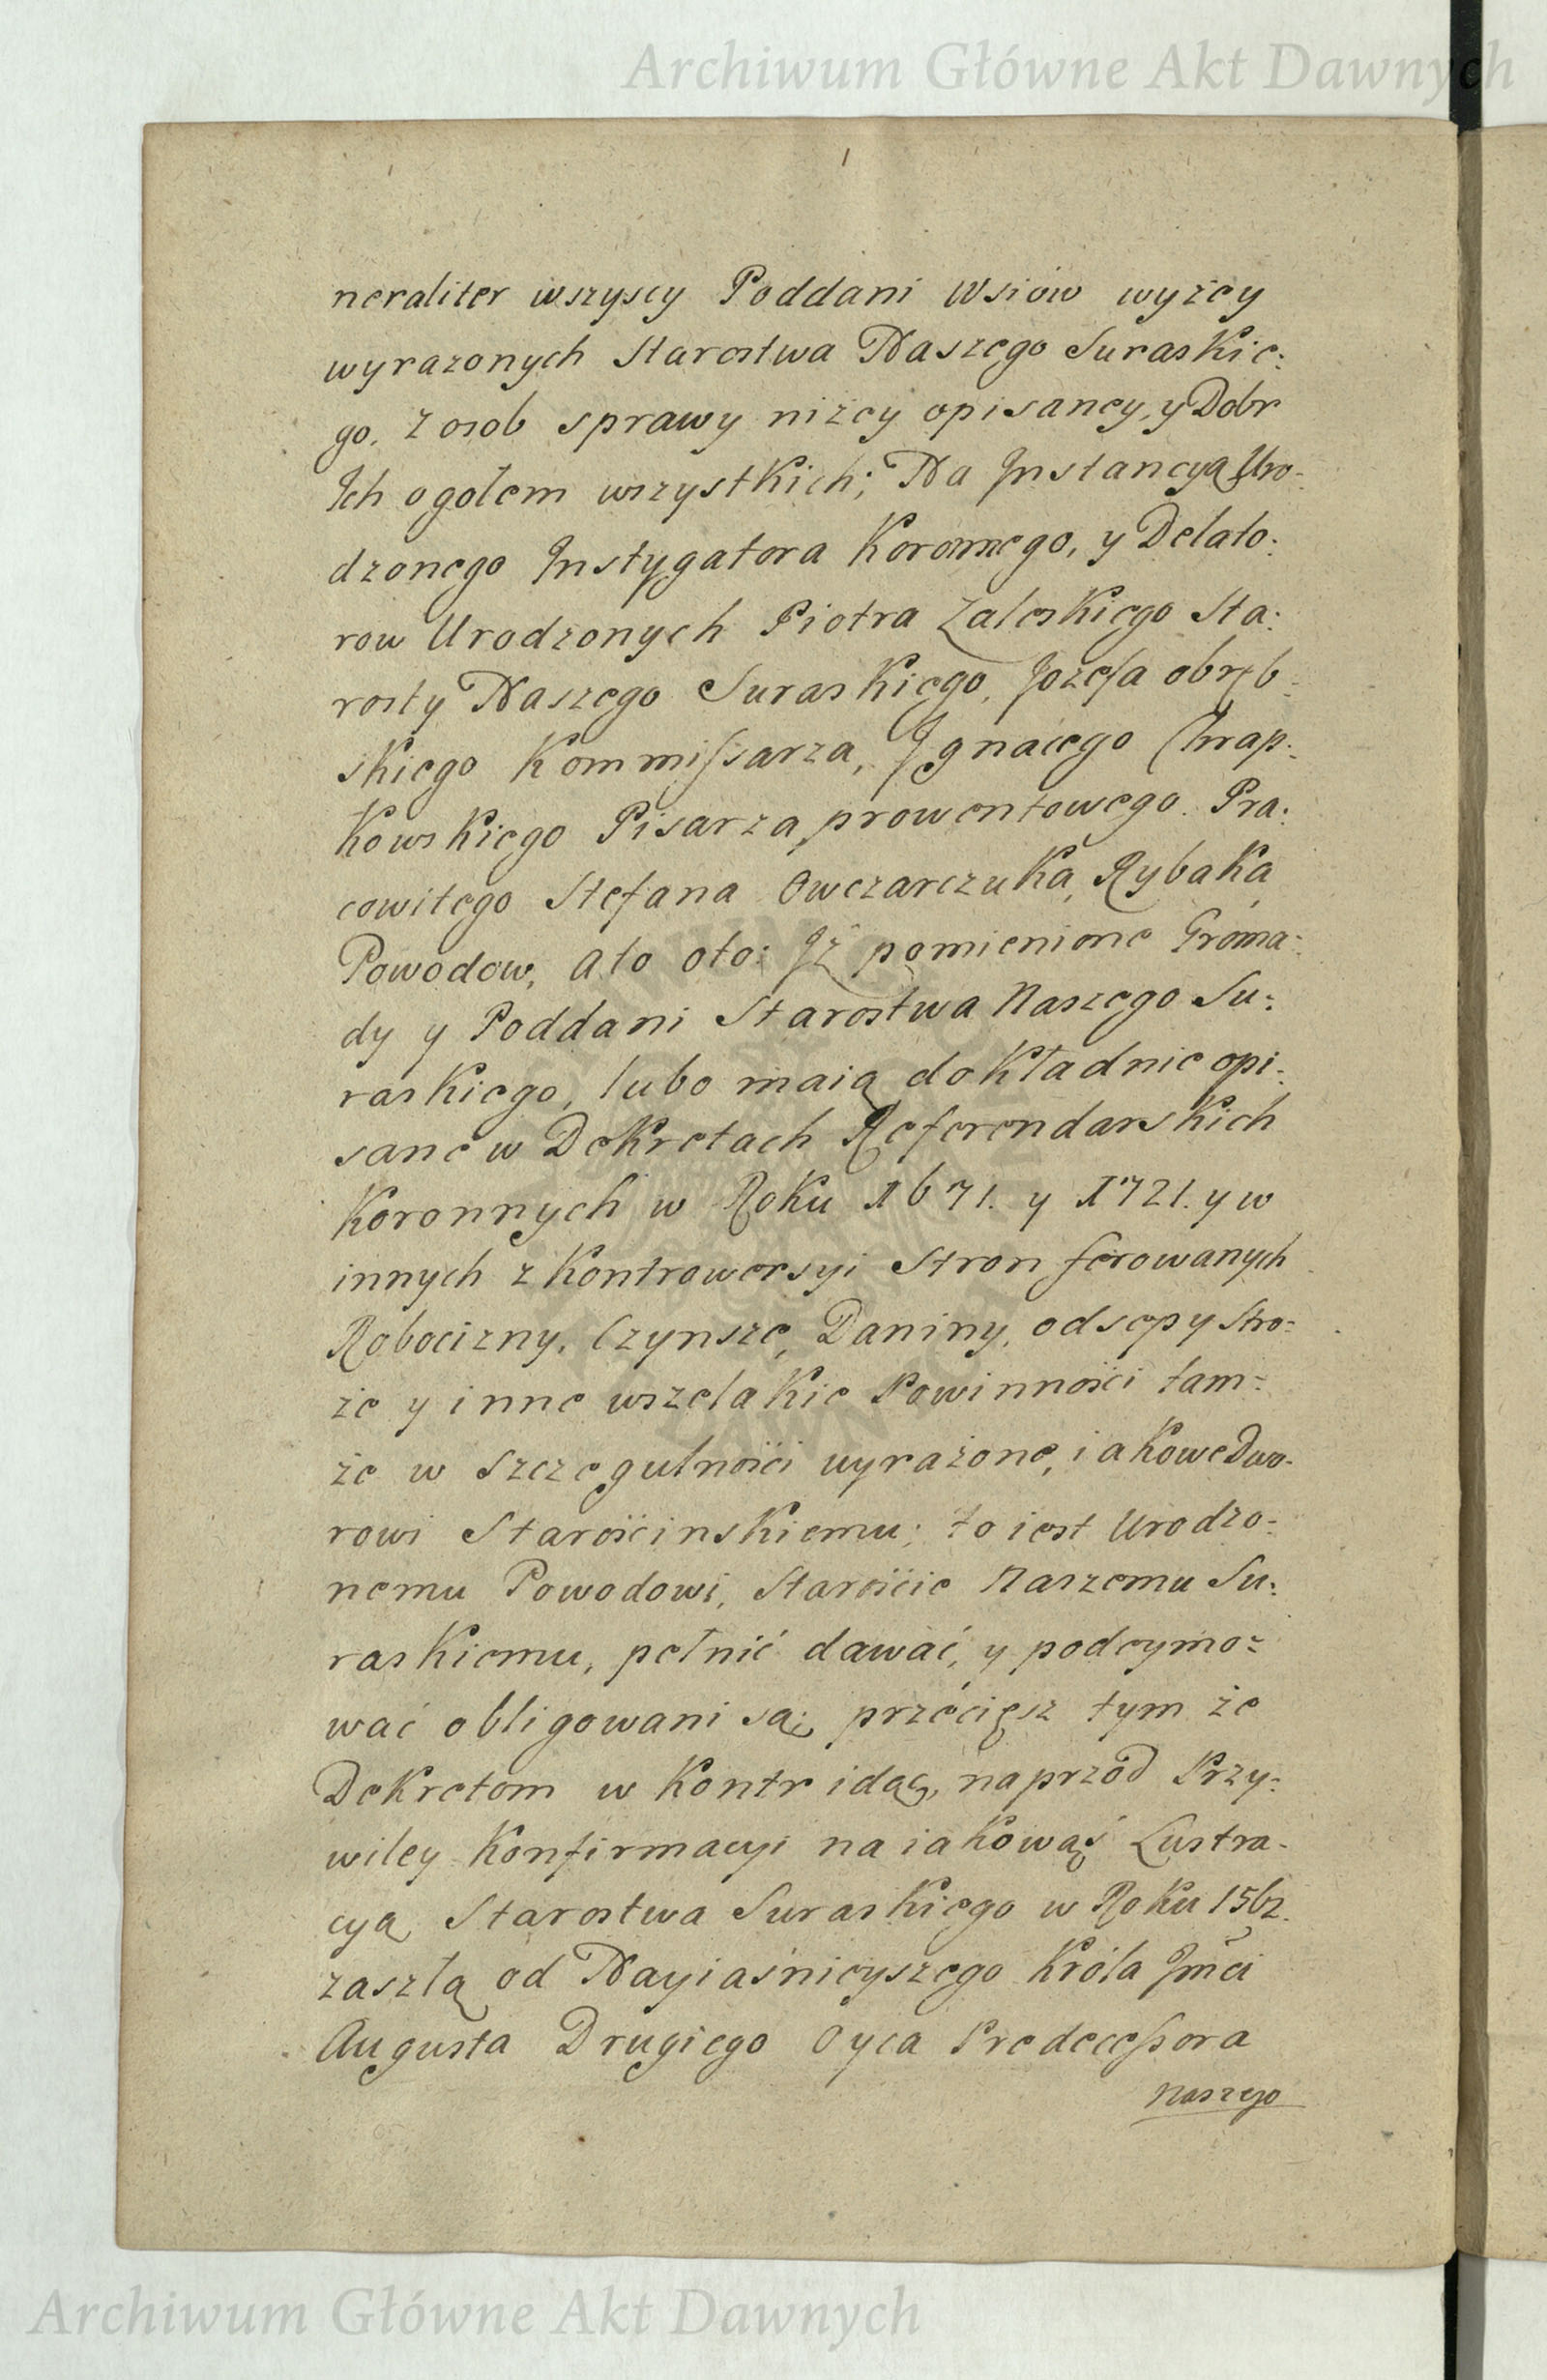 Archiwum Główne Akt Dawnych
neraliter wszyscy Poddani Wsiow wyżey
wyrazonych Starostwa Naszego Suraskie:
go. z osob sprawy niżey opisaney, y Dobr
Ich ogołem wszystkich; Na Instancyą Uro-
dzonego Instygatora Koronnego, y Delato:
row Urodzonych Piotra Zaleskiego Sta:
rosty Naszego Suraskiego, Jozefa obręb-
skiego Kommissarza, Jgnacego Chrap:
kowskiego Pisarza prowentowego. Pra:
cowitego Stefana Owczarczuka, Rybaka,
Powodow, a to oto: Jż pomienione Groma:
dy y Poddani Starostwa Naszego Su:
raskiego, lubo maią dokładnie opi:
sane w Dekretach Referendarskich
Koronnych w Roku 1671. y 1721. y w
innych z Kontrowersyi Stron ferowanych
Robocizny, Czynsze, Daniny, odsepy Stro:
że y inne wszelakie Powinności tam:
że w szczegulności wyrażone, iakowe Dwo-
rowi Starościnskiemu; to iest Urodzo:
nemu Powodowi, Starościc Naszemu Su:
raskiemu, pełnić dawać, y podeymo:
wać obligowani są; przécięsz tym że
Dekretom w Kontr idąc, naprzód Przy:
wiley Konfirmacyi na iakowąś Lustra-
cyą Starostwa Suraskiego w Roku 1562.
zaszłą od Nayiaśnieyszego Króla Jmći
Augusta Drugiego Oyca Predecessora
naszego
Archiwum Główne Akt Dawnych